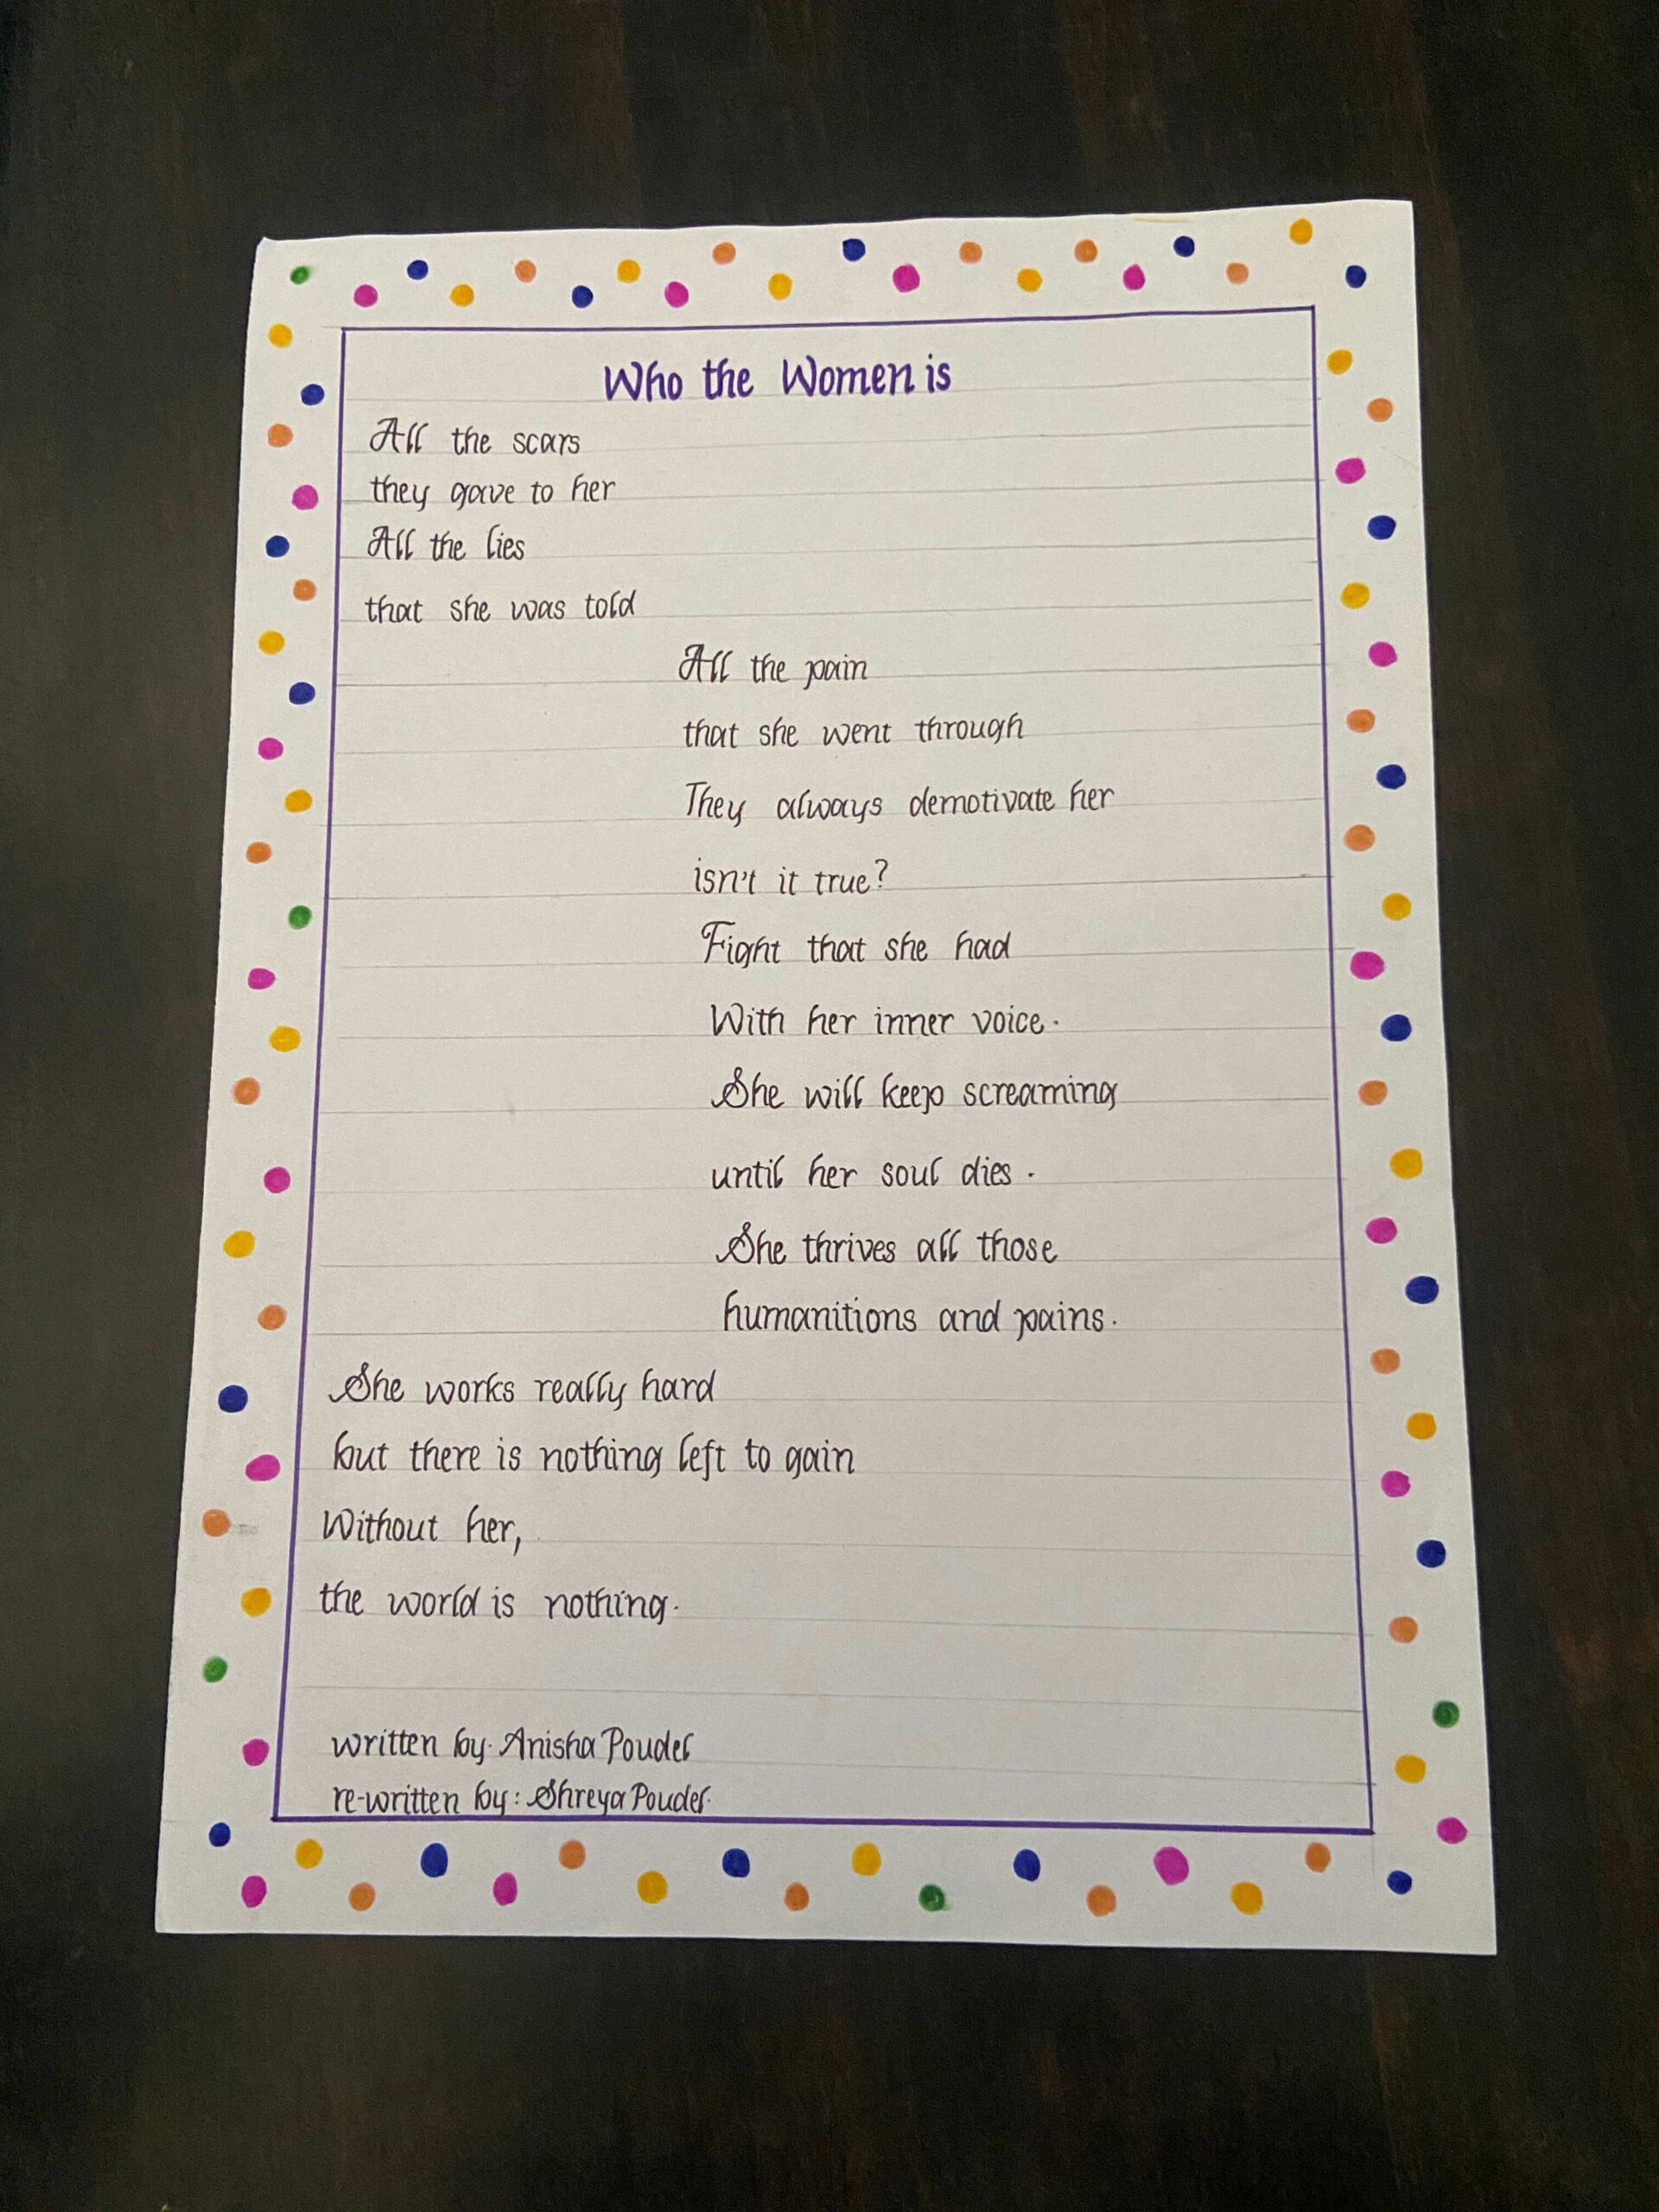 Who the Women is
All the scars
they gave to her
All the lies
that she was told
All the pain
that she went through
They always demotivate her
isn't it true?
Fight that she had
With her inner voice.
She will keep screaming
until her soul dies.
She thrives all those
humanitions and pains.
She works really hard
but there is nothing left to gain
Without her,
the world is nothing.
written by: Anisha Poudel
re-written by: Shreya Poudel.